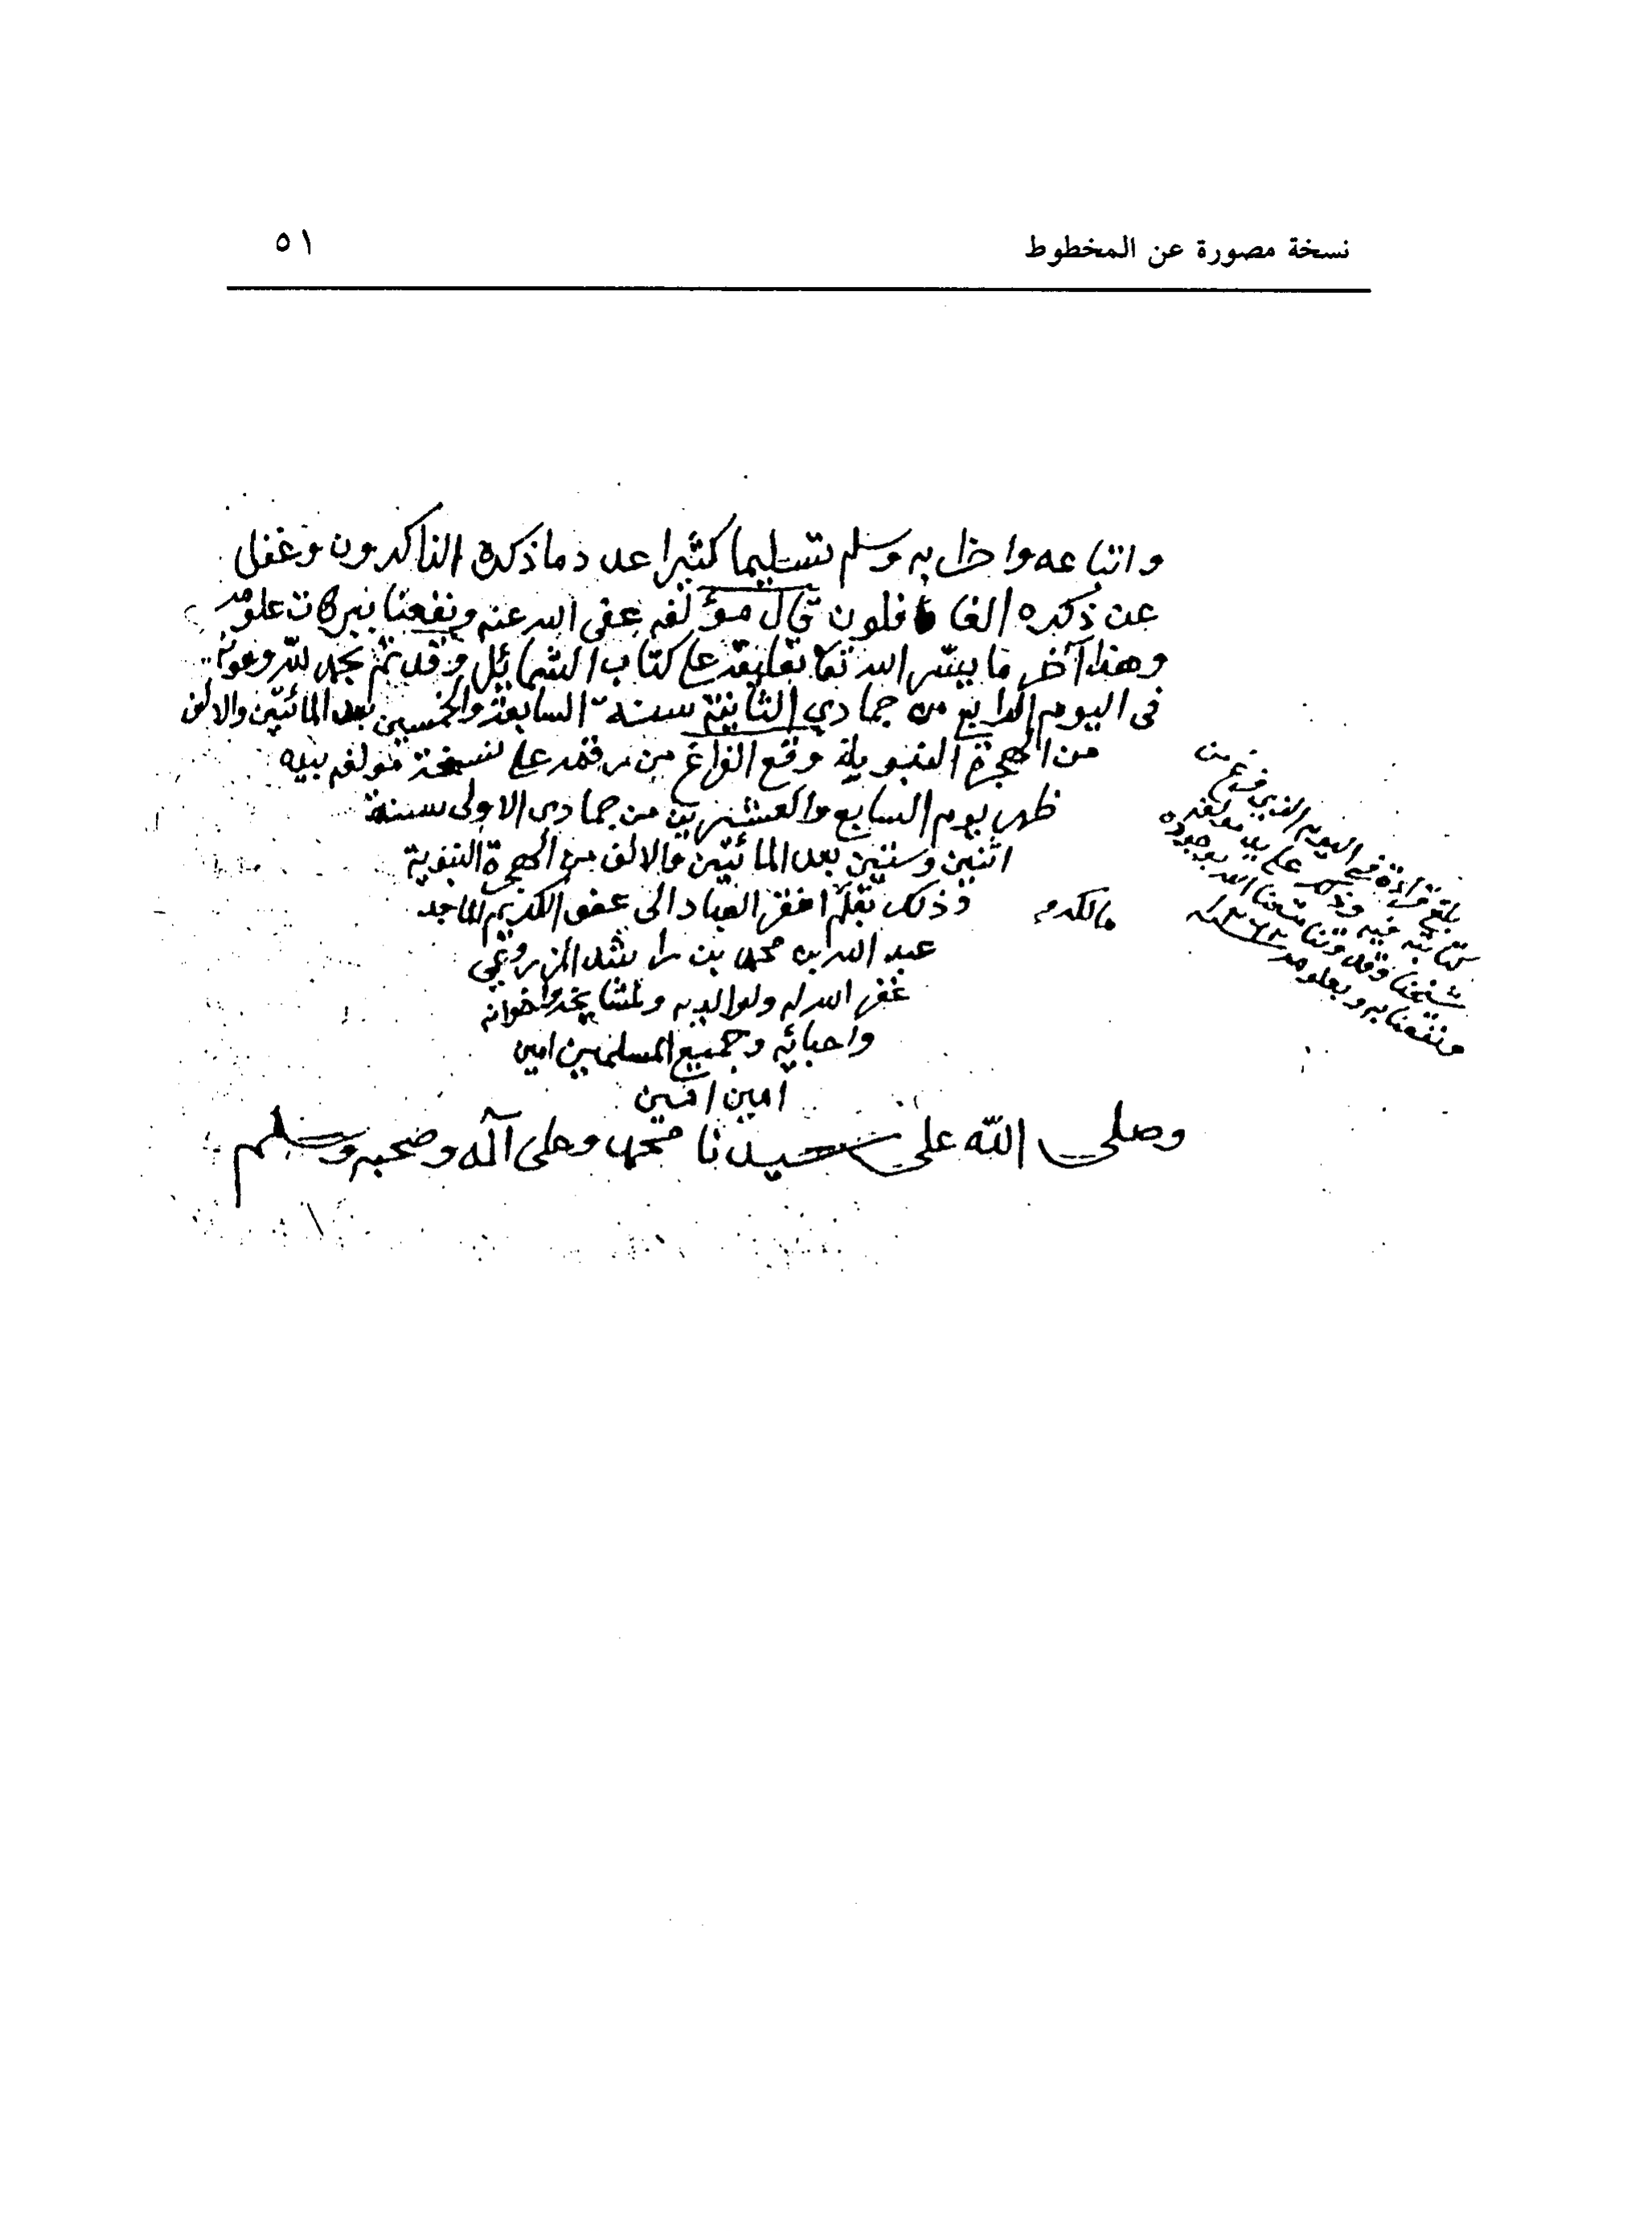 نسخة مصورة عن المخطوط
٥١
واتباعه واحزابه وسلم تسليما كثيرا عدد ما ذكره الذاكرون وغفل
عن ذكره الغافلون قال مؤلفه عفى الله عنه ونفعنا ببركات علومه
وهذا آخر ما يسر الله تعا تعليقه على كتاب الشمائل وقد تم بحمد لله وعونه
فى اليوم الرابع من جمادي الثانية سنة السابعة والخمسين بعد المائتين والالف
من الهجرة النبوية وقع الفراغ من رقمه على نسخة مولفه بيد
ظهر يوم السابع والعشرين من جمادى الاولى سنة
اثنين وستين بعد المائتين والالف من الهجرة النبوية
وذلك بقلم افقر العباد الى عفو الكريم الماجد
عبد الله بن محمد بن راشد المزروعي
غفر الله له ولوالديه ولمشايخه واخوانه
واحبائه وجميع المسلمين امين
امين امين
وصلى الله على سيدنا محمد وعلى آله وصحبه وسلم
بلغ قراءة في اليوم الذي فرغ من
كتابته فيه وذلك على يد مولفه
شيخنا وقدوتنا متعنا الله بوجوده
ونفعنا به وبعلومه